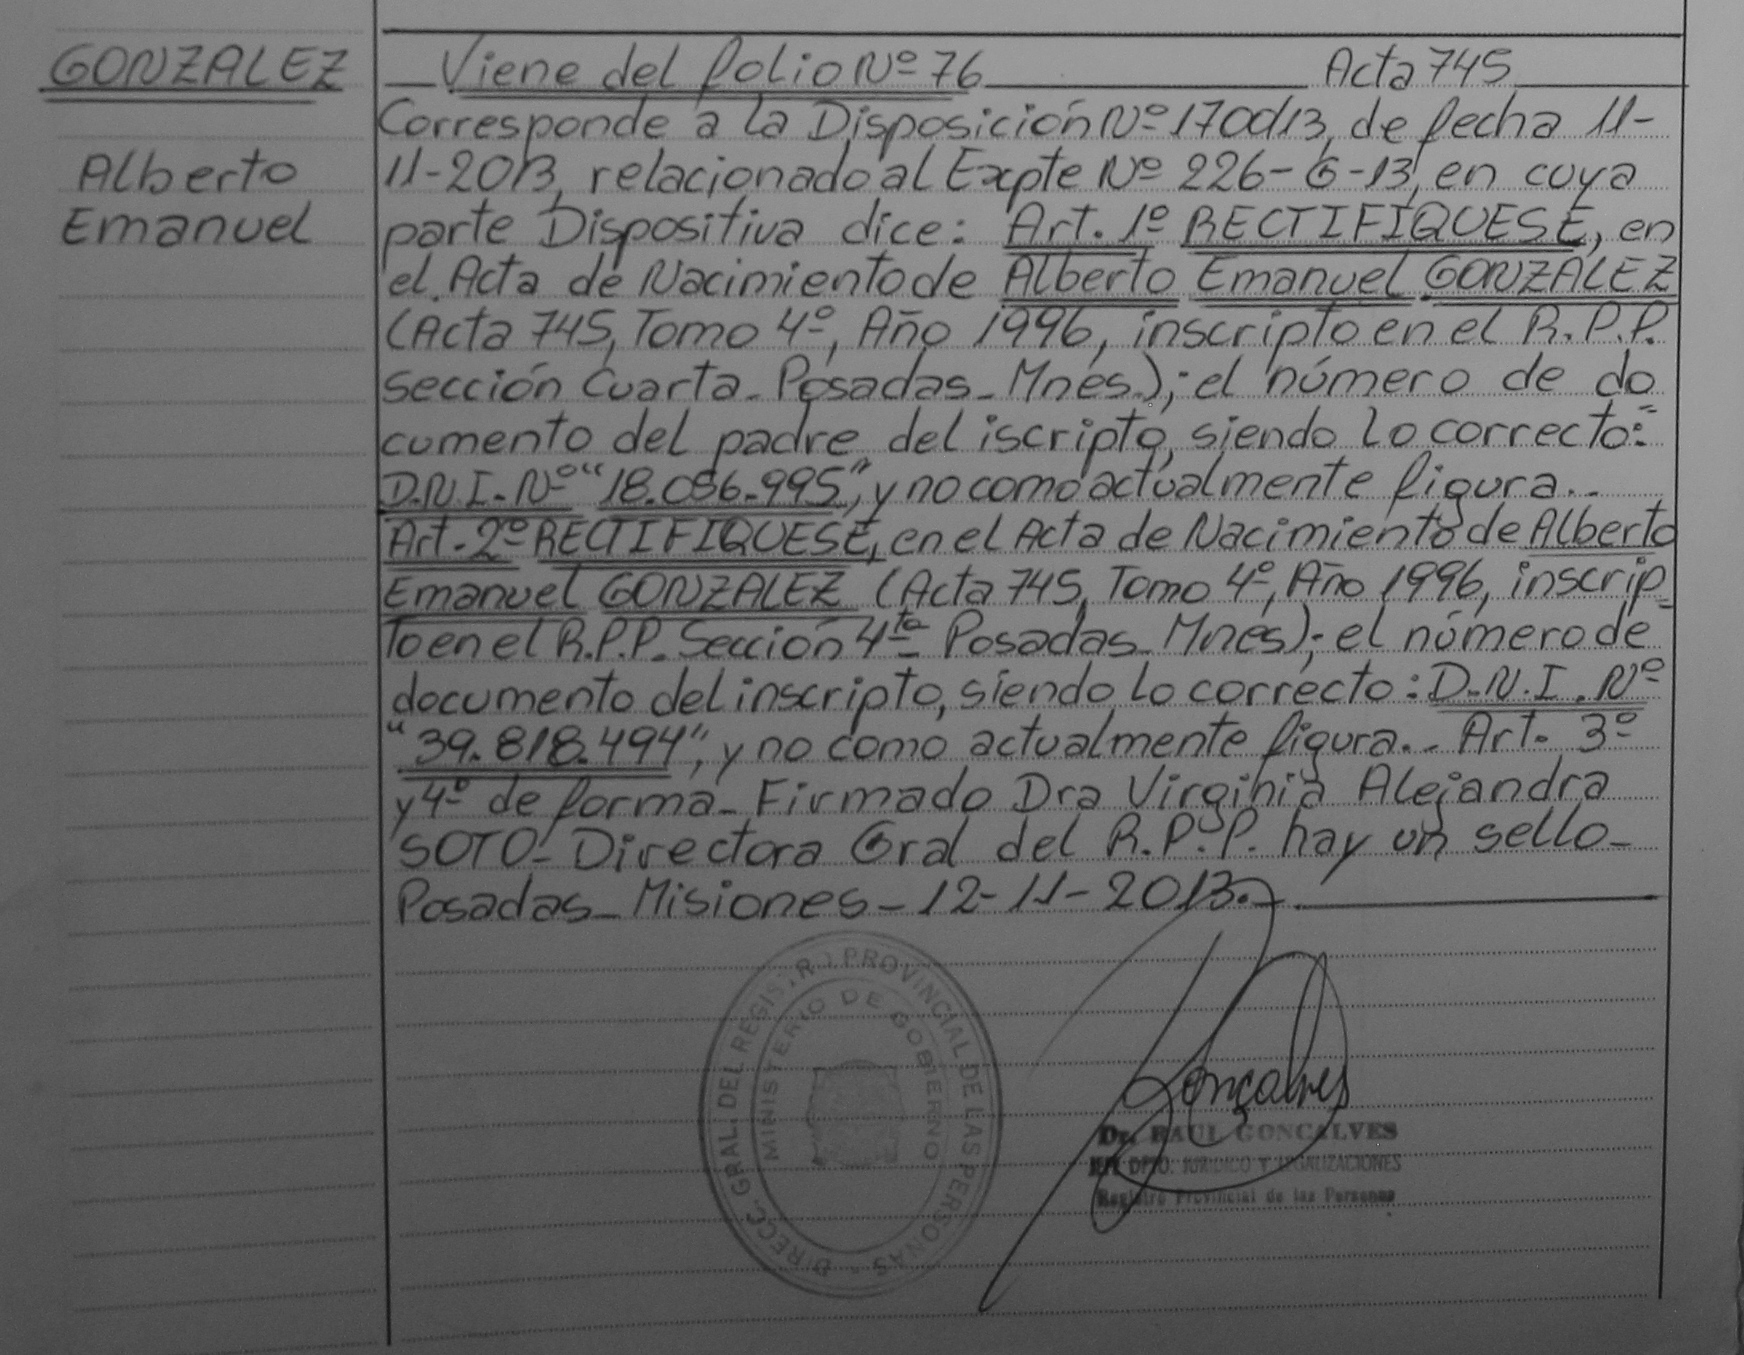 GONZALEZ
Alberto
Emanuel
Viene del folio Nº 76 Acta 745
Corresponde a la Disposición Nº 1700/13, de fecha 11-
11-2013, relacionado al Expte Nº 226-G-13, en cuya
parte Dispositiva dice: Art. 1º RECTIFIQUESE, en
el Acta de Nacimiento de Alberto Emanuel GONZALEZ
(Acta 745, Tomo 4º, Año 1996, inscripto en el R.P.P.
Sección Cuarta_Posadas_Mnes.); el número de do
cumento del padre del iscripto, siendo lo correcto:
D.N.I. Nº "18.056.995", y no como actualmente figura..
Art. 2º RECTIFIQUESE, en el Acta de Nacimiento de Alberto
Emanuel GONZALEZ (Acta 745, Tomo 4º, Año 1996, inscrip=
to en el R.P.P. Sección 4ta Posadas_Mnes); el número de
documento del inscripto, siendo lo correcto: D.N.I. Nº
"39.818.494", y no como actualmente figura.. Art. 3º
y 4º de forma_Firmado Dra Virginia Alejandra
SOTO_Directora Gral del R.P.P. hay un sello_
Posadas_Misiones_12-11-2013._
DIRECC. GRAL. DEL REGISTRO PROVINCIAL DE LAS PERSONAS
MINISTERIO DE GOBIERNO
Gonçalves
Dr. RAUL GONCALVES
DPTO. JURIDICO Y LEGALIZACIONES
Registro Provincial de las Personas